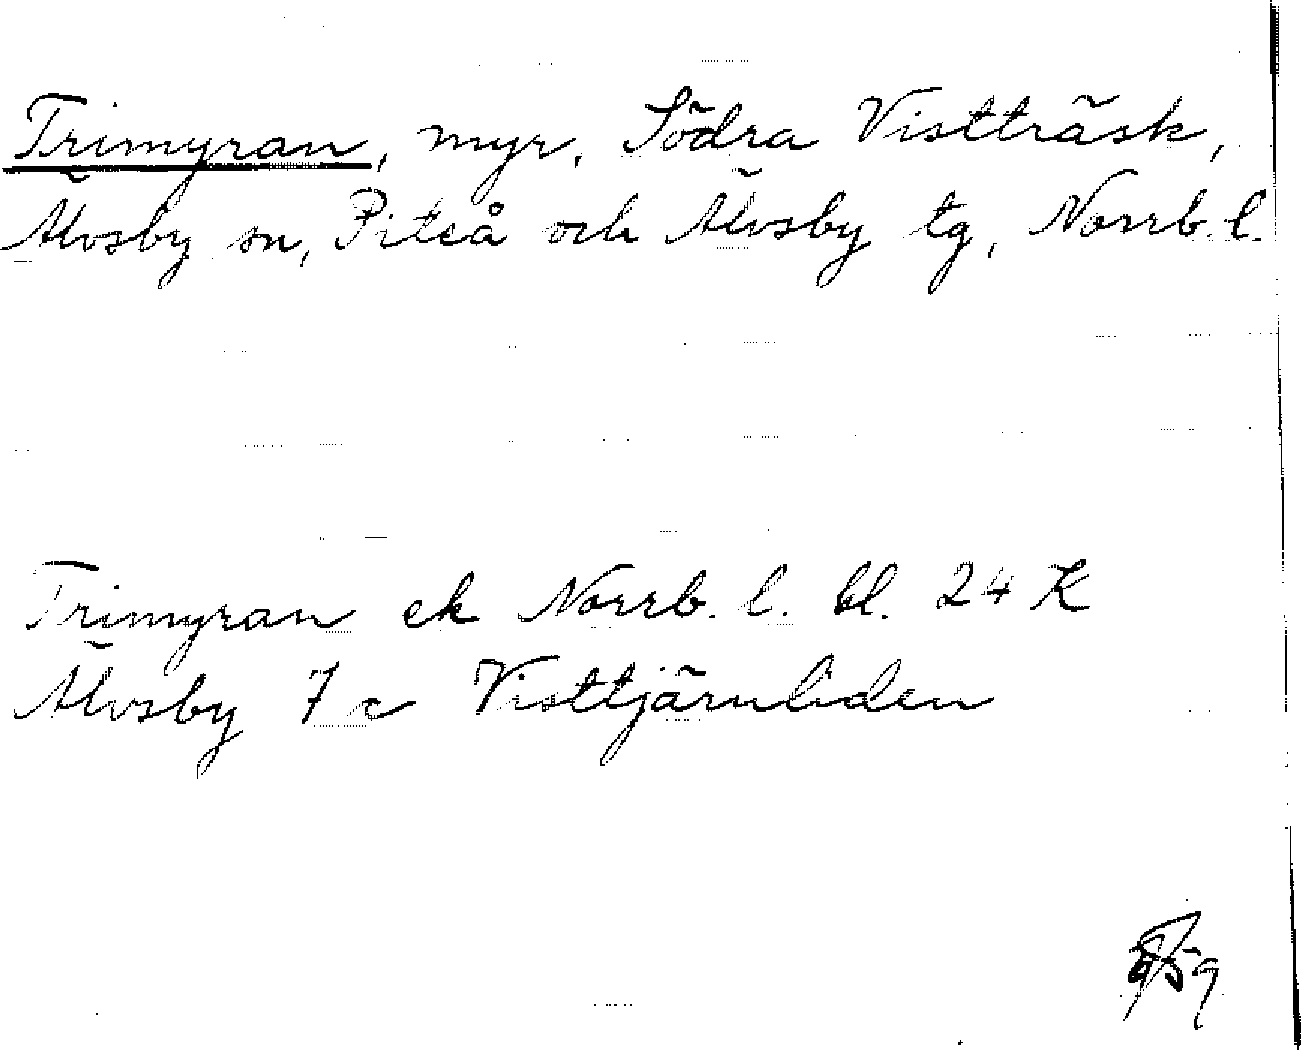 Trimyran, myr, Södra Vistträsk,
Älvsby sn, Piteå och Älvsby tg, Norrb. l.
Trimyran ek Norrb. l. bl. 24 K
Älvsby 7 c Visttjärnliden